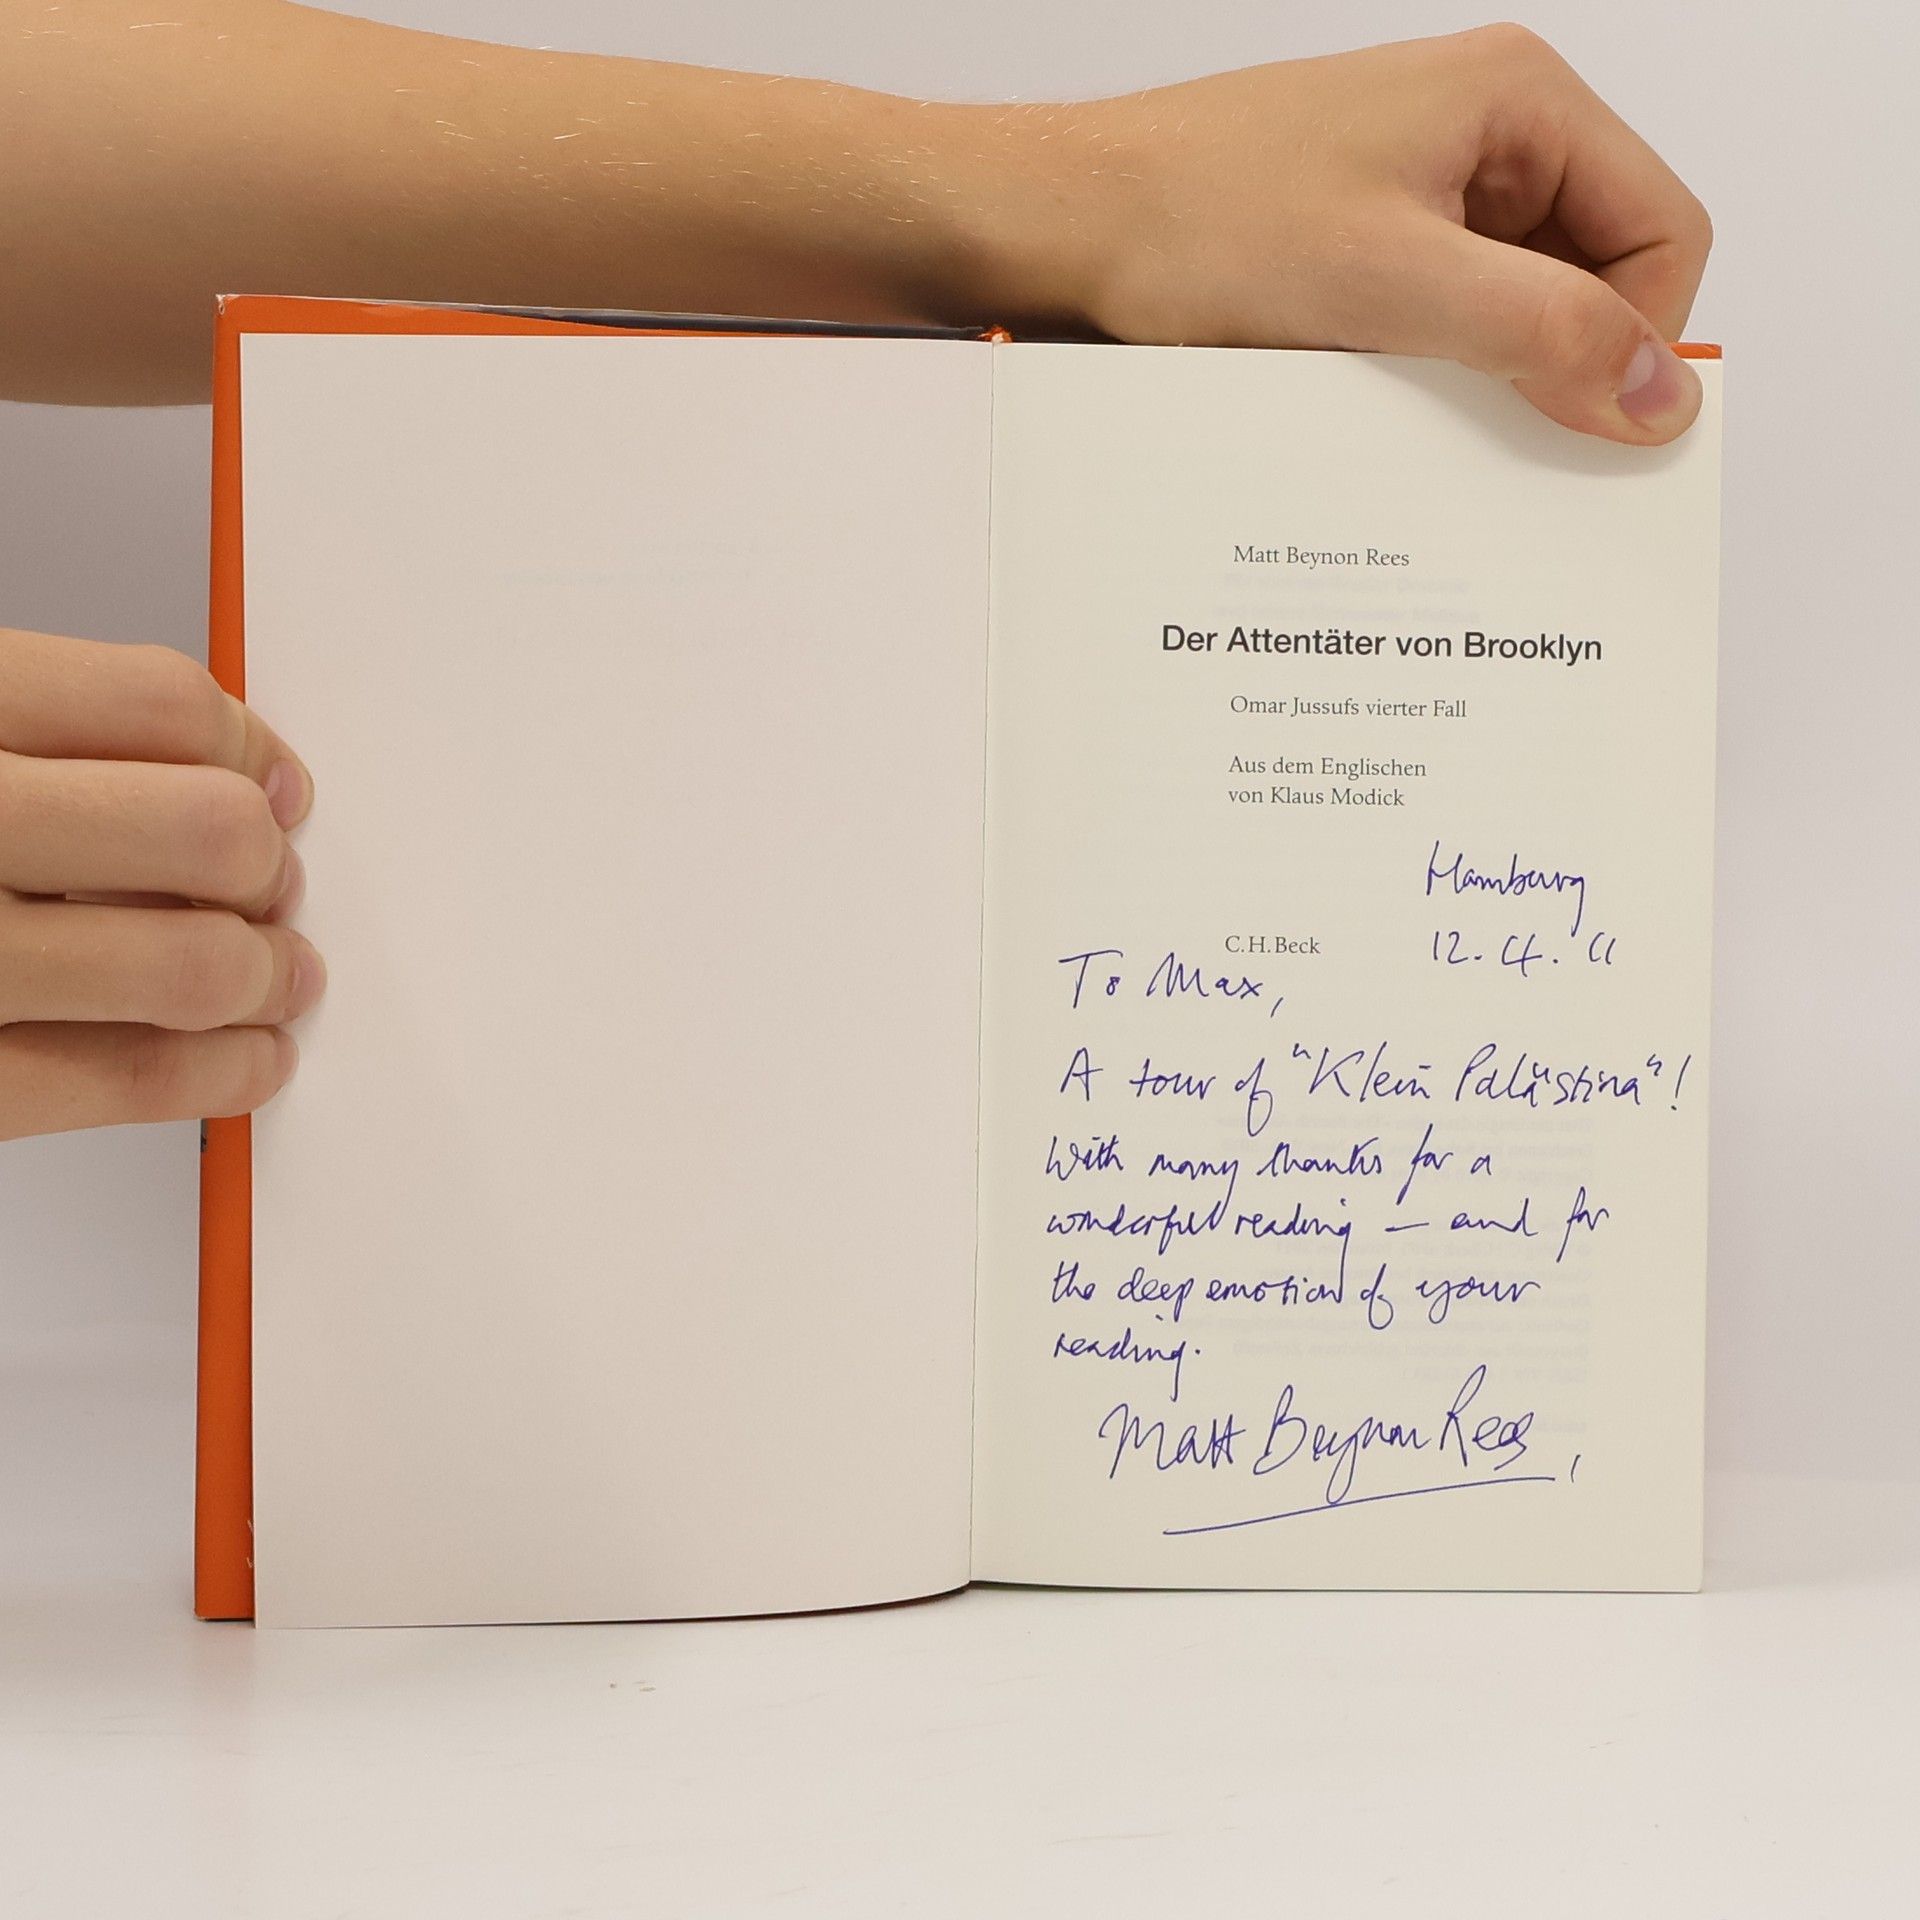 Matt Beynon Rees
Der Attentäter von Brooklyn
Omar Jussufs vierter Fall
Aus dem Englischen
von Klaus Modick
C.H.Beck
Hamburg
12. 4. 11
To Max,
A tour of "Klein Palästina"!
With many thanks for a
wonderful reading — and for
the deep emotion of your
reading.
Matt Beynon Rees